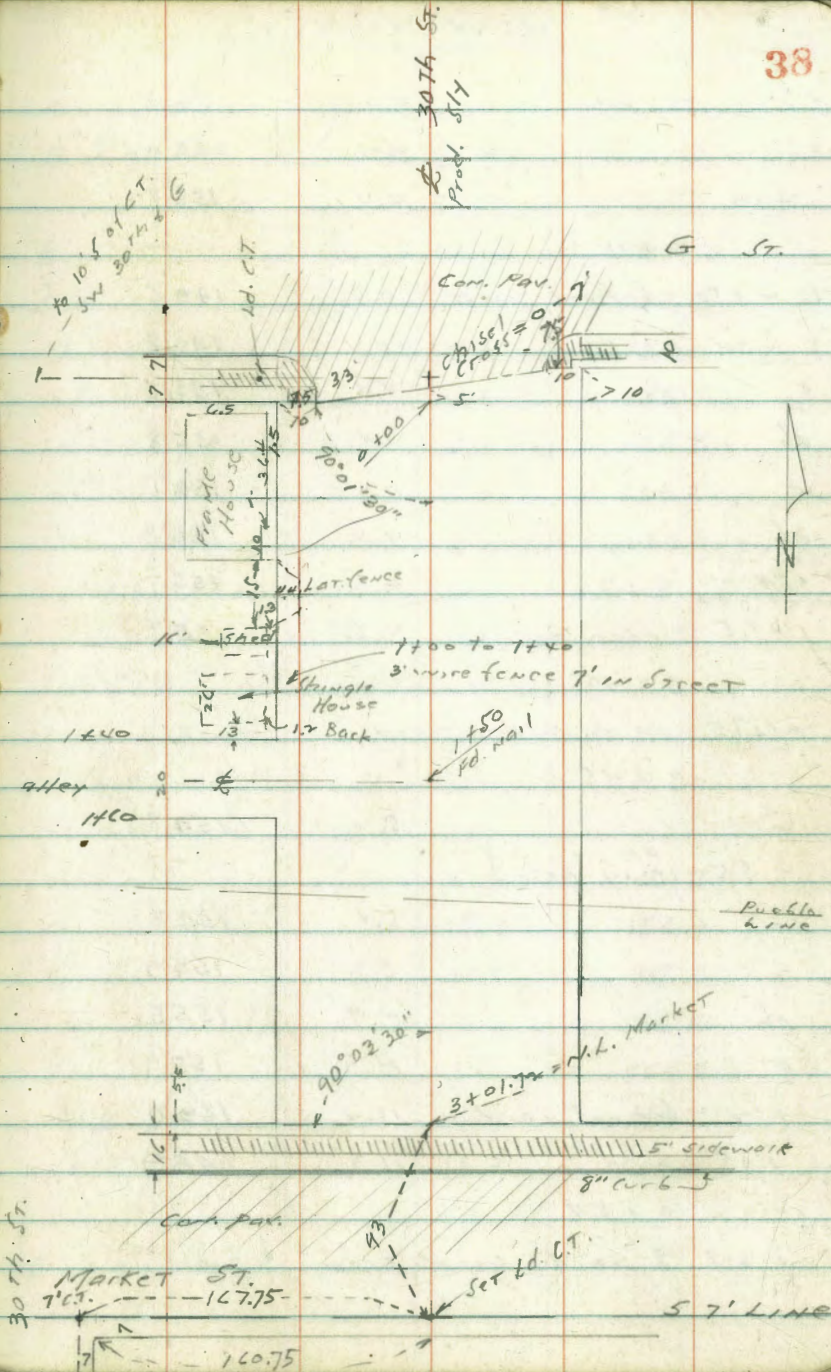 38
℄ 30Th ST.
Prod. Sly
to 10' S of C.T.
SW 30th & G
Ld. C.T.
G ST.
Con. Pav.
Chisel Cross = 0 - 7'
7.5
7 7
33
7.5
10
5'
10
> 10
6.5
0+00
90°01'30"
Frame
House
36.4
1.5
10
15
Lat. fence
16'
Shed
1+00 to 1+40
3' wire fence 7' in Street
Shingle
House
1+40
13
1.2 Back
1+50
fd. nail
N
alley
20
℄
1+60
Pueblo
Line
90°03'30"
3+01.72 = N.L. Market
5.5
16
5' Sidewalk
8" Curb
Con. Pav.
93
Set Ld. C.T.
30Th. ST.
Market ST.
7' C.T.
167.75
S 7' LINE
7
7
160.75